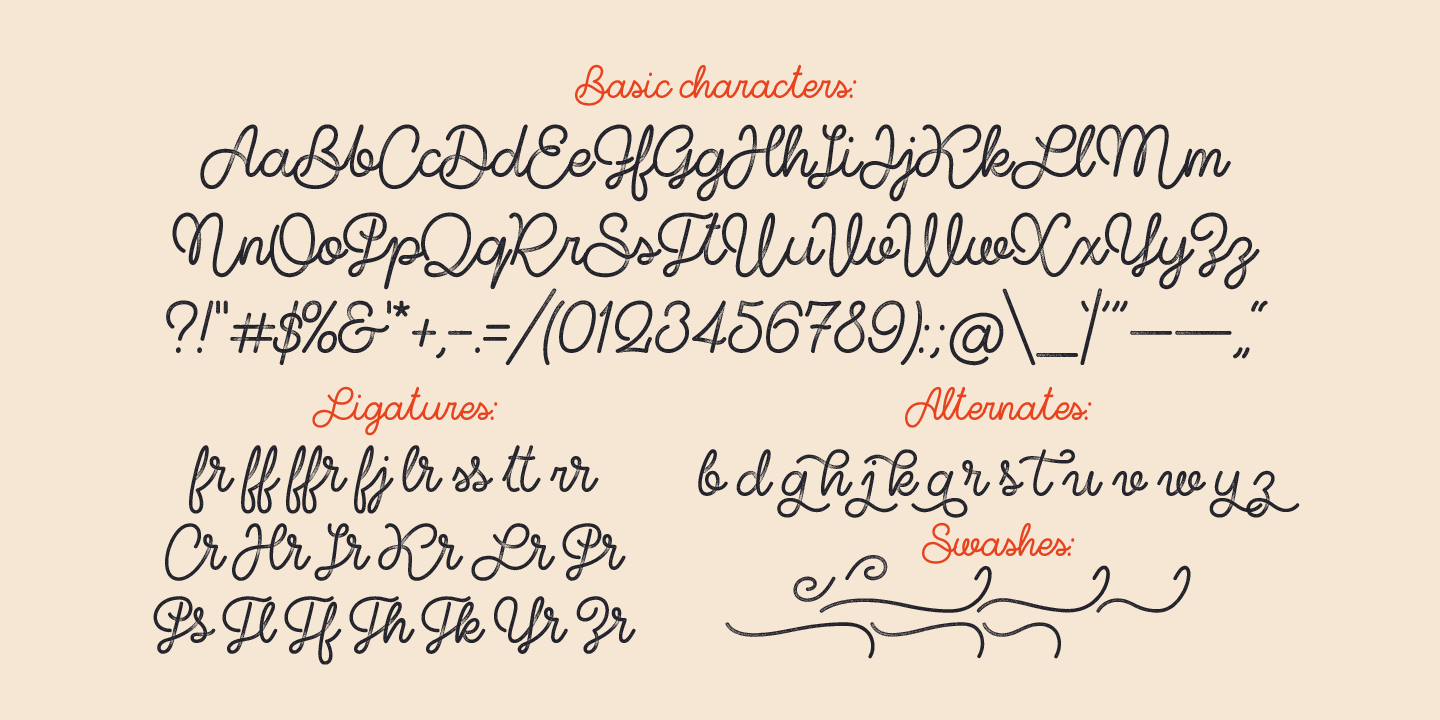 Basic characters:
AaBbCcDdEeFfGgHhIiJjKkLlMm
NnOoPpQqRrSsTtUuVvWwXxYyZz
?!"#$%&'*+,-.=/(0123456789):;@\_`|’”–—„“
Ligatures:
fr ff ffr fj lr ss tt rr
Cr Hr Ir Kr Lr Pr
Ps Tl Tf Th Tk Yr Zr
Alternates:
b d g h j k q r s t u v w y z
Swashes: